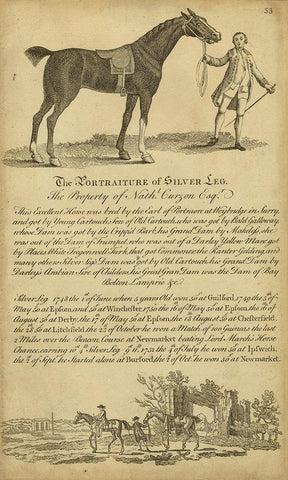 53
The PORTRAITURE of SILVER LEG.
The Property of Nath.l Curzon Esq.r
This Excellent Horse was bred by the Earl of Portmore at Weybridge in Surry,
and got by Young Cartouch, Son of Old Cartouch, who was got by Bald Galloway
whose Dam was got by the Cripple Barb; his Grand Dam by Makeless, she
was out of the Dam of Trumpet, who was out of a Darley Yellow Mare got
by Place's White
many other. Silver Leg's Dam was got by Old Cartouch, his Grand Dam by
Darley's Arabian Sire of Childers; his Great Gran Dam was the Dam of Bay
Bolton, Lamprie &c.
Silver Leg 1748 the 1st of June when 5 years Old won 50 at Guilford, 1749 the 5th of
May 50 at Epsom, and 50 at Winchester, 1750 the 16 of May 50 at Epsom, the 16 of
August 50 at Derby, the 17 of May 50 at Epsom, the 13 August 50 at Chesterfield,
the 28 50 at Litchfield, the 23 of October he won a Match of 100 Guineas the last
2 Miles over the Beacon Course at Newmarket beating Lord March's Horse
Chance, carrying 10 st. Silver Leg 9 st. 11. 1751 the 4 of July he won 50 at Ipswich,
the 2 of Sept. he Started alone at Burford, the 2 of Oct. he won 50 at Newmarket.